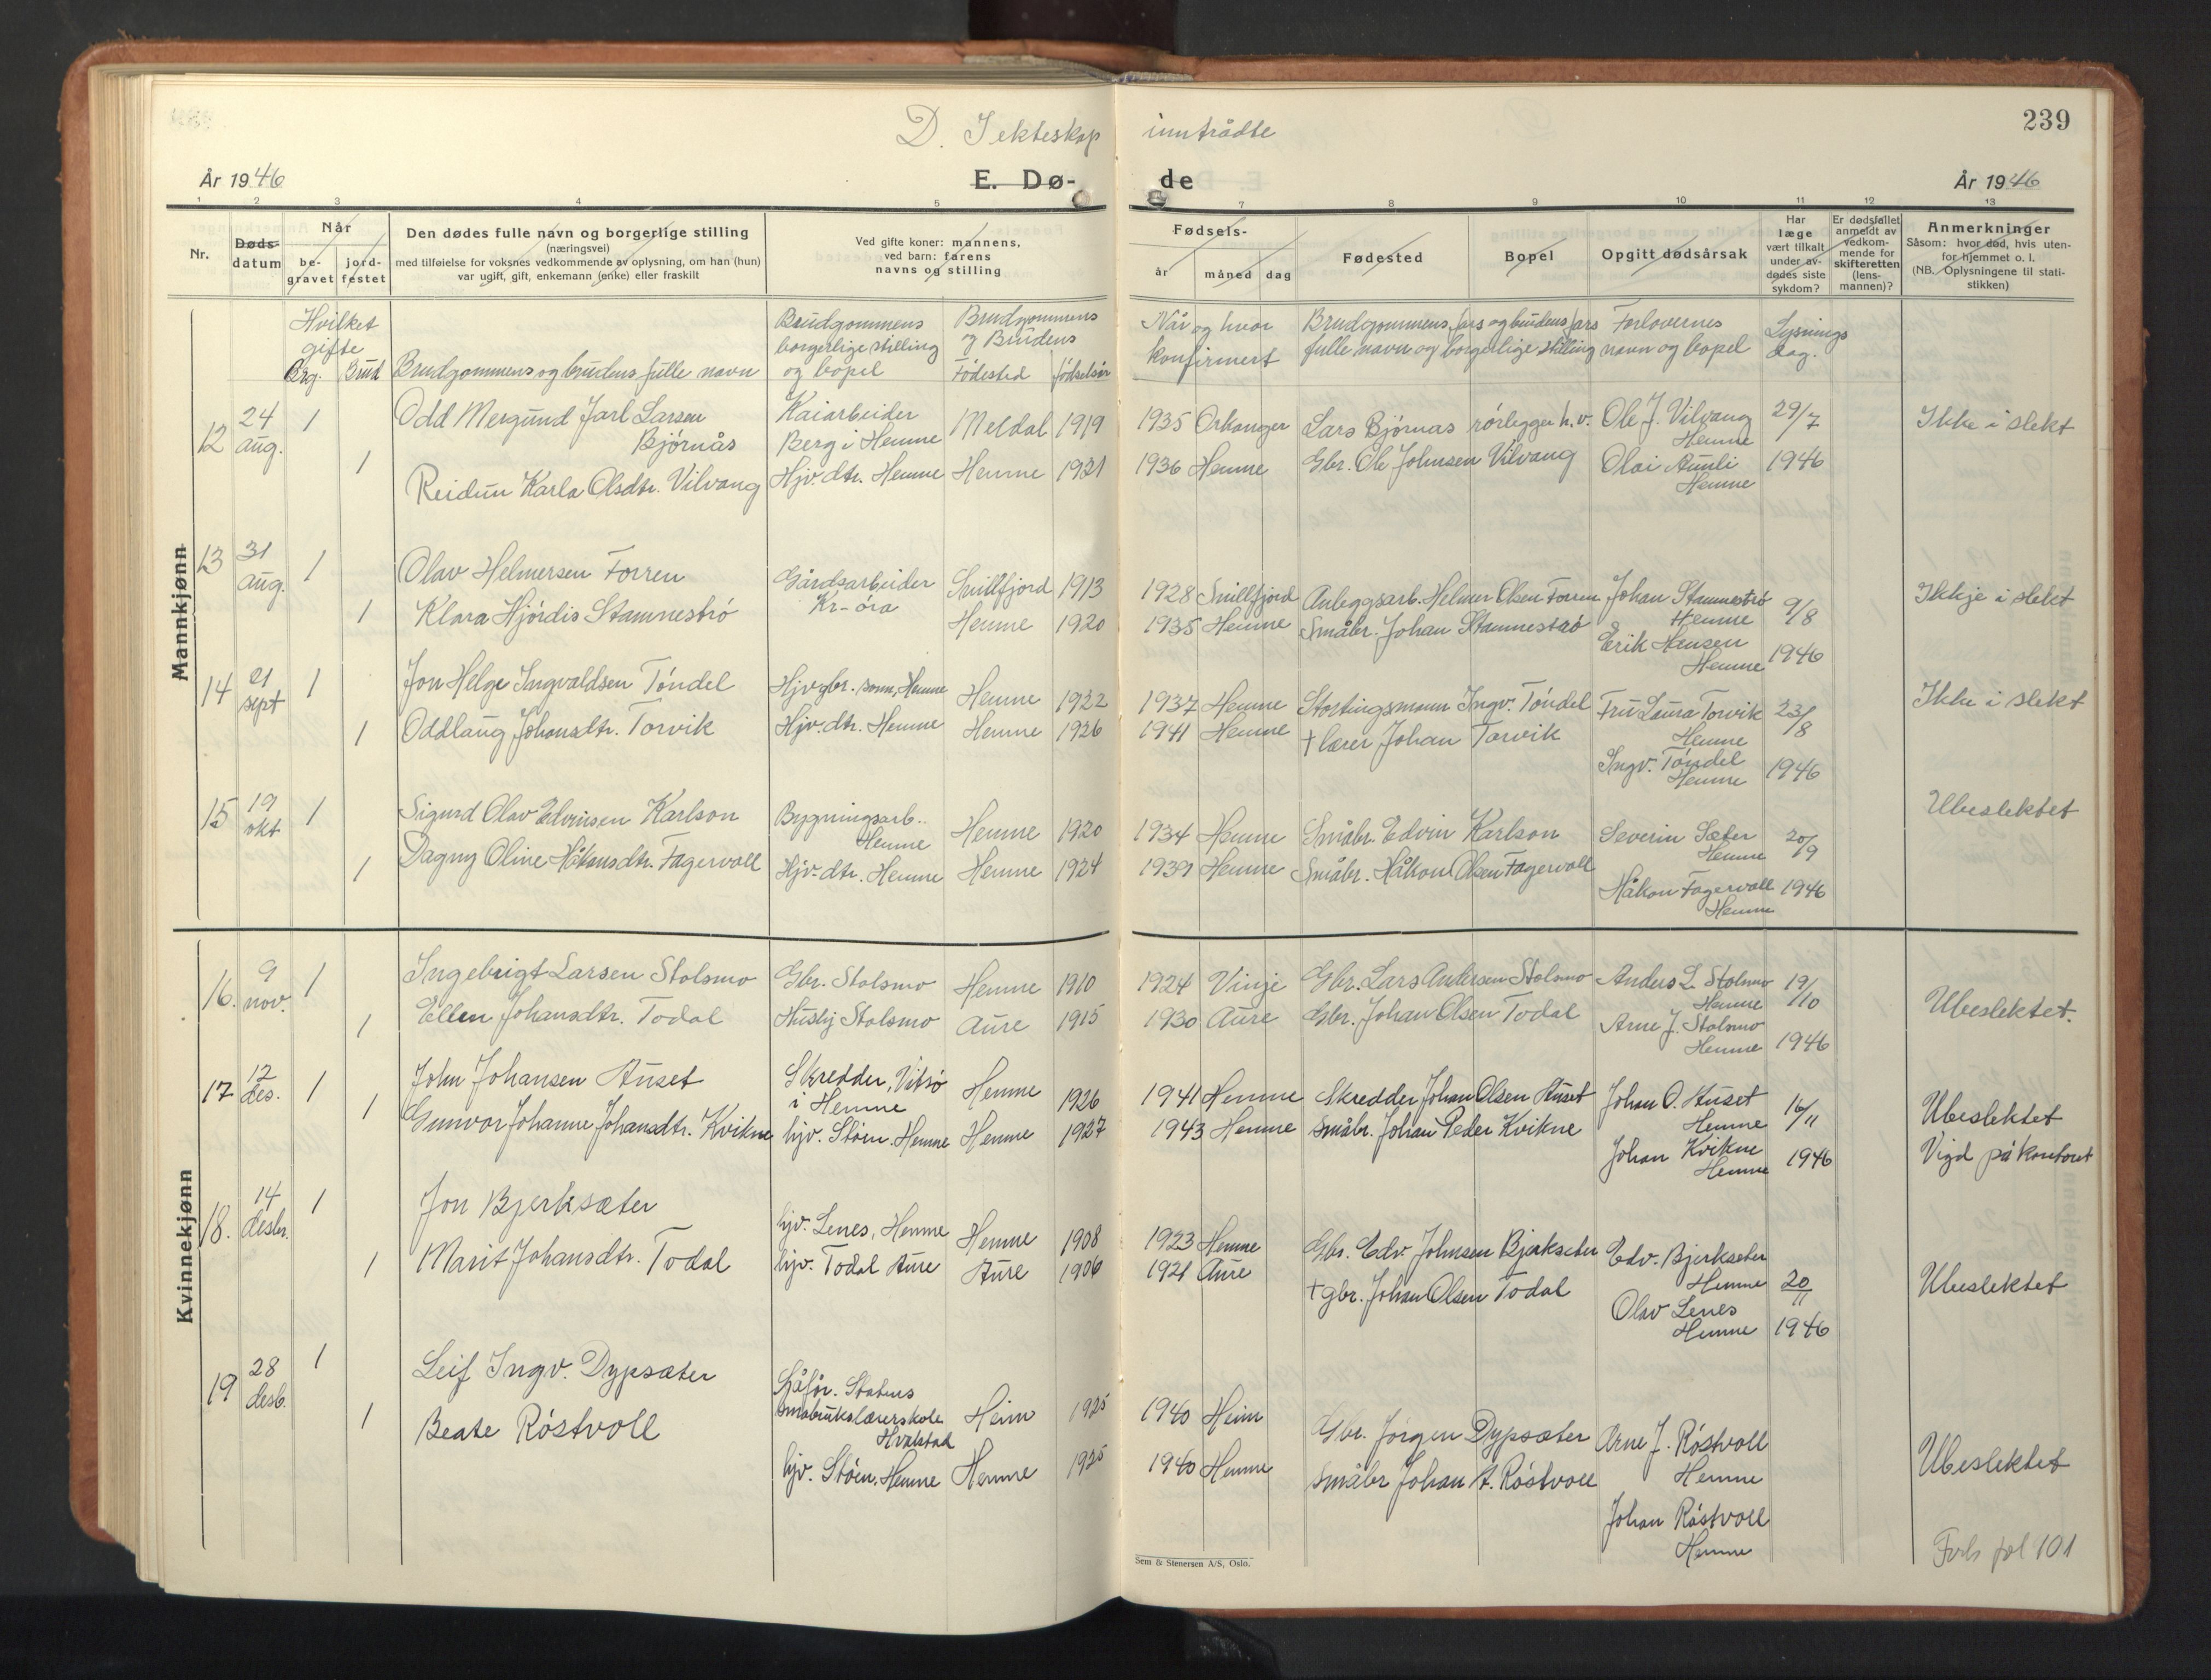 239
D. I ekteskap inntrådte
År 1946 E. Dø- de År 1946
1 2 3 4 5 7 8 9 10 11 12 13
Nr.
Døds-
datum
Når
be-
gravet
jord-
festet
Den dødes fulle navn og borgerlige stilling
(næringsvei)
med tilføielse for voksnes vedkommende av oplysning, om han (hun)
var ugift, gift, enkemann (enke) eller fraskilt
Ved gifte koner: mannens,
ved barn: farens
navns og stilling
Fødsels-
år måned dag
Fødested
Bopel
Opgitt dødsårsak
Har
læge
vært tilkalt
under av-
dødes siste
sykdom?
Er dødsfallet
anmeldt av
vedkom-
mende for
skifteretten
(lens-
mannen)?
Anmerkninger
Såsom: hvor død, hvis uten-
for hjemmet o. l.
(NB. Oplysningene til stati-
stikken)
Hvilket
gifte
Brg. Brud
Brudgommens og brudens fulle navn
Brudgommens
borgerlige stilling
og bopel
Brudgommens
og Brudens
Fødested fødselsår
Når og hvor
konfirmert
Brudgommens fars og brudens fars
fulle navn og borgerlige stilling
Forlovernes
navn og bopel
Lysnings
dag.
Mannkjønn
12 24 aug. 1 Odd Mergund Jarl Larsen
Bjørnås
Kaiarbeider
Berg i Hemne
Meldal 1919 1935 Orkanger Lars Bjørnas rørlegger h.v. Ole J. Vilvang
Hemne
29/7 Ikke i slekt
1 Reidun Karla Olsdtr. Vilvang Hjv. dtr. Hemne Hemne 1921 1936 Hemne Gbr. Ole Johnsen Vilvang Olai Aunli
Hemne
1946
13 31 aug. 1 Olav Helmersen Forren Gårdsarbeider
Kr-øra
Snillfjord 1913 1928 Snillfjord Anleggsarb. Helmer Olsen Forren Johan Stamnestrø
Hemne
9/8 Ikkje i slekt
1 Klara Hjørdis Stamnestrø Hemne 1920 1935 Hemne Småbr. Johan Stamnestrø Erik Hansen
Hemne
1946
14 21 sept 1 Jon Helge Ingvaldsen Tøndel Hjv gbr. sønn, Hemne Hemne 1922 1937 Hemne Stortingsmann Ingv. Tøndel Fru Laura Torvik
Hemne
23/8 Ikke i slekt
1 Oddlaug Johansdtr. Torvik Hjv. dtr. Hemne Hemne 1926 1941 Hemne † lærer Johan Torvik Ingv. Tøndel
Hemne
1946
15 19 okt 1 Sigurd Olav Edvinsen Karlson Bygningsarb.
Hemne
Hemne 1920 1934 Hemne Småbr. Edvin Karlson Severin Sæter
Hemne
20/9 Ubeslektet
1 Dagny Oline Håkonsdtr. Fagervoll Hjv. dtr. Hemne Hemne 1924 1939 Hemne Småbr. Håkon Olsen Fagervoll Håkon Fagervoll
Hemne
1946
Kvinnekjønn
16. 9 nov. 1 Ingebrigt Larsen Stolsmo Gbr. Stolsmo Hemne 1910 1924 Vinje Gbr. Lars Andersen Stolsmo Anders L. Stolsmo
Hemne
19/10 Ubeslektet.
1 Ellen Johansdtr. Todal Hushj Stolsmo Aure 1915 1930 Aure Gbr. Johan Olsen Todal Arne J. Stolsmo
Hemne
1946
17 12 des. 1 John Johansen Auset Skredder, Vitsø
i Hemne
Hemne 1926 1941 Hemne Skredder Johan Olsen Auset Johan O. Auset
Hemne
16/11 Ubeslektet
1 Gunvor Johanne Johansdtr. Kvikne hjv. Støen. Hemne Hemne 1927 1943 Hemne småbr. Johan Peder Kvikne Johan Kvikne
Hemne
1946 Vigd på kontoret
18. 14 desbr. 1 Jon Bjerksæter hjv. Lenes, Hemne Hemne 1908 1923 Hemne Gbr. Edv. Johnsen Bjerksæter Edv. Bjerksæter
Hemne
20/11 Ubeslektet
1 Marit Johansdtr. Todal hjv. Todal Aure Aure 1906 1921 Aure † gbr. Johan Olsen Todal Olav Lenes
Hemne
1946
19 28 desb. 1 Leif Ingv. Dypsæter Sjåfør. Statens
småbrukslærerskole
Hvalstad
Heim 1925 1940 Heim Gbr. Jørgen Dypsæter Arne J. Røstvoll
Hemne
Ubeslektet
1 Beate Røstvoll hjv. Støen, Hemne Hemne 1925 1940 Hemne småbr Johan A. Røstvoll Johan Røstvoll
Hemne
Sem & Stenersen A/S, Oslo.
Forts fol 101